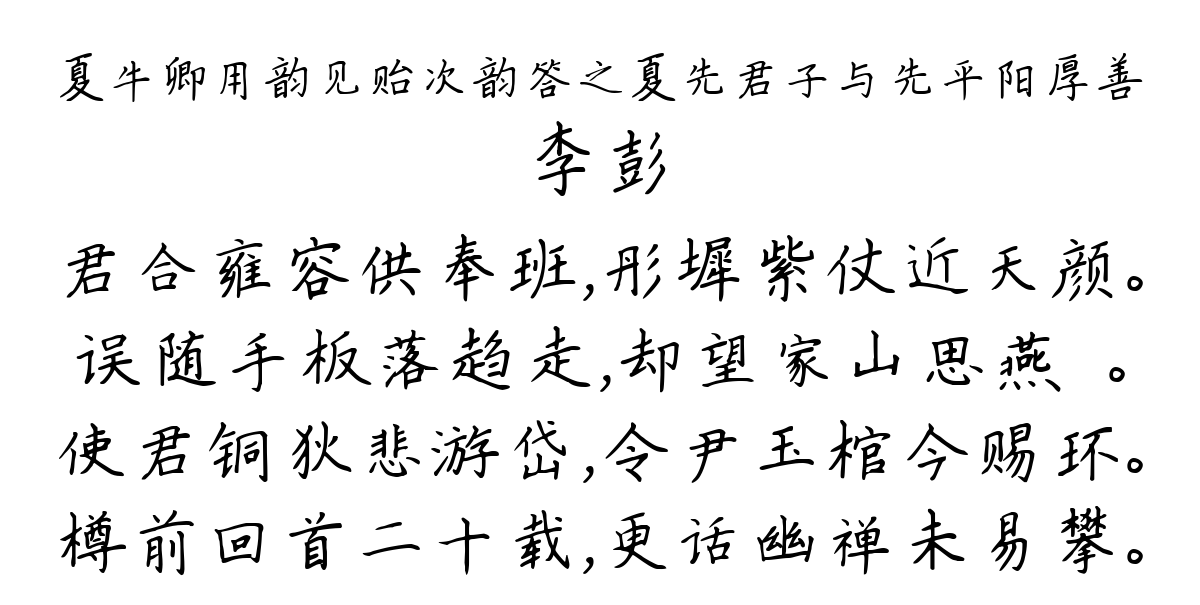 夏牛卿用韵见贻次韵答之夏先君子与先平阳厚善
李彭
君合雍容供奉班,彤墀紫仗近天颜。
误随手板落趋走,却望家山思燕 。
使君铜狄悲游岱,令尹玉棺今赐环。
樽前回首二十载,更话幽禅未易攀。